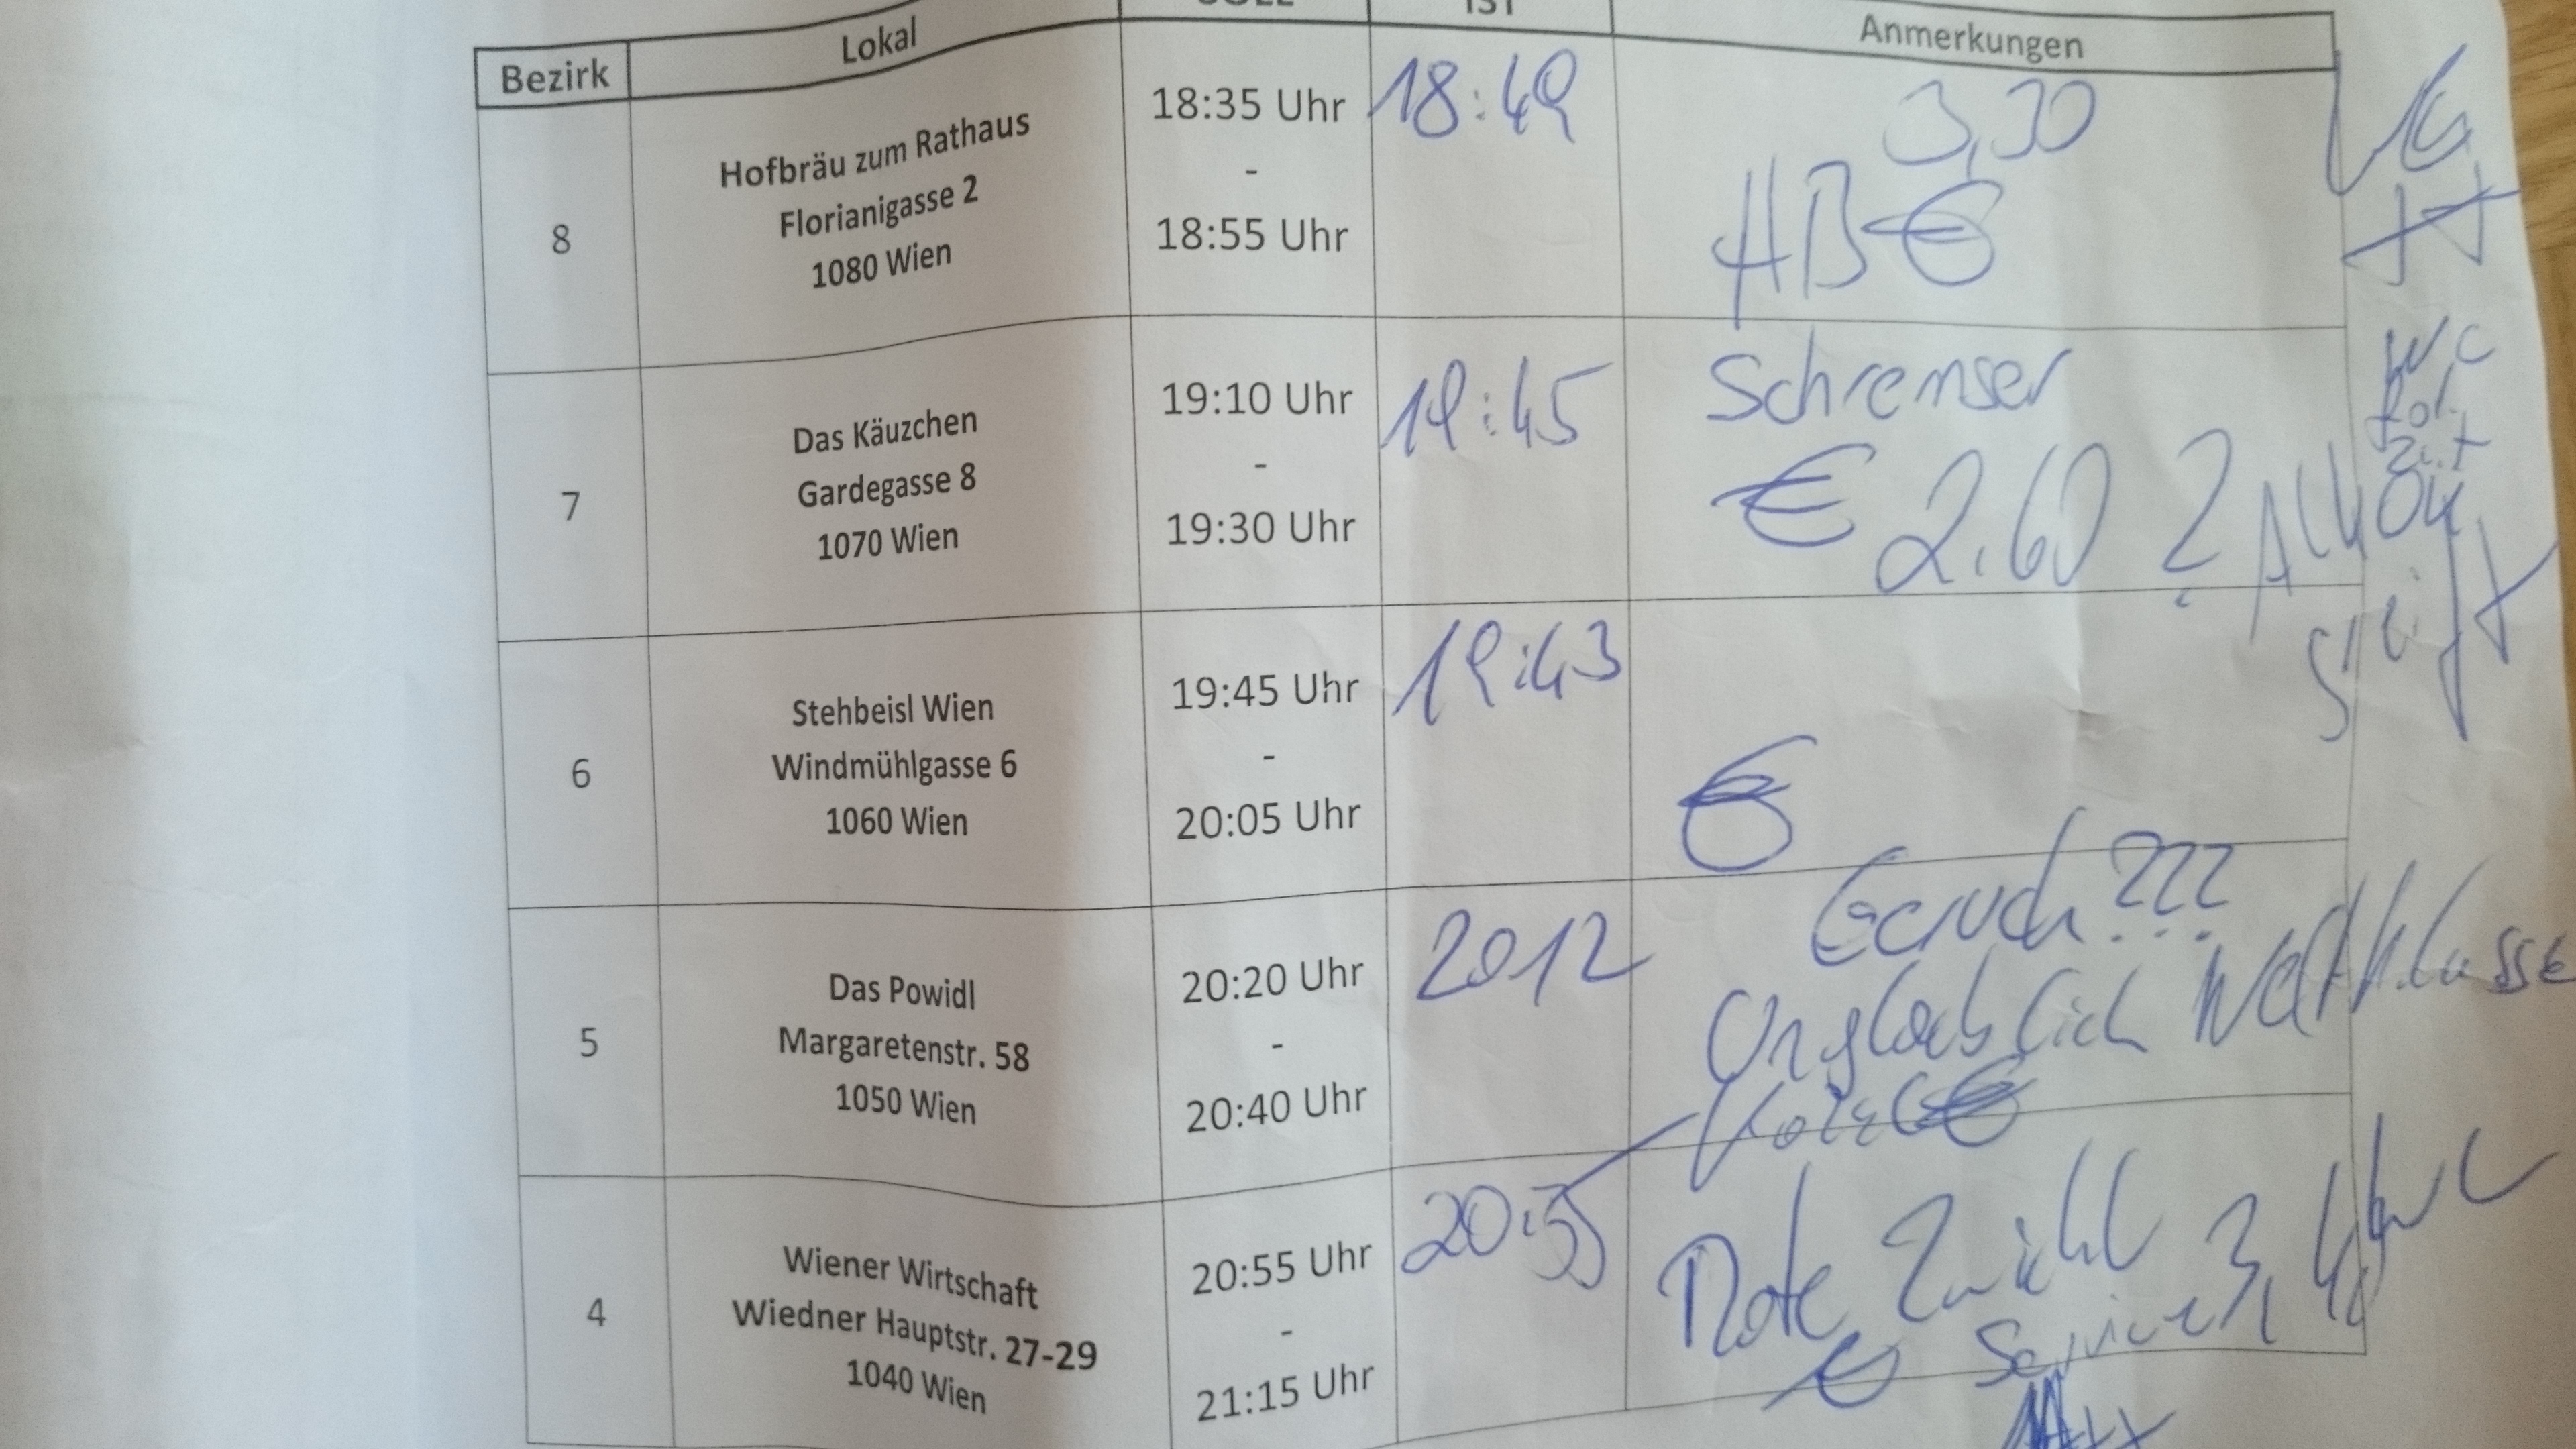 Bezirk Lokal SOLL IST Anmerkungen
8
Hofbräu zum Rathaus
Florianigasse 2
1080 Wien
18:35 Uhr
-
18:55 Uhr
18:49
3,30
HB €
WC
++
7
Das Käuzchen
Gardegasse 8
1070 Wien
19:10 Uhr
-
19:30 Uhr
19:45
Schremser
€ 2.60 ?
WC
6
Stehbeisl Wien
Windmühlgasse 6
1060 Wien
19:45 Uhr
-
20:05 Uhr
19:43
€
5
Das Powidl
Margaretenstr. 58
1050 Wien
20:20 Uhr
-
20:40 Uhr
2012
Geruch ???
Unglaublich Weltklasse
€
4
Wiener Wirtschaft
Wiedner Hauptstr. 27-29
1040 Wien
20:55 Uhr
-
21:15 Uhr
Note
€ Service